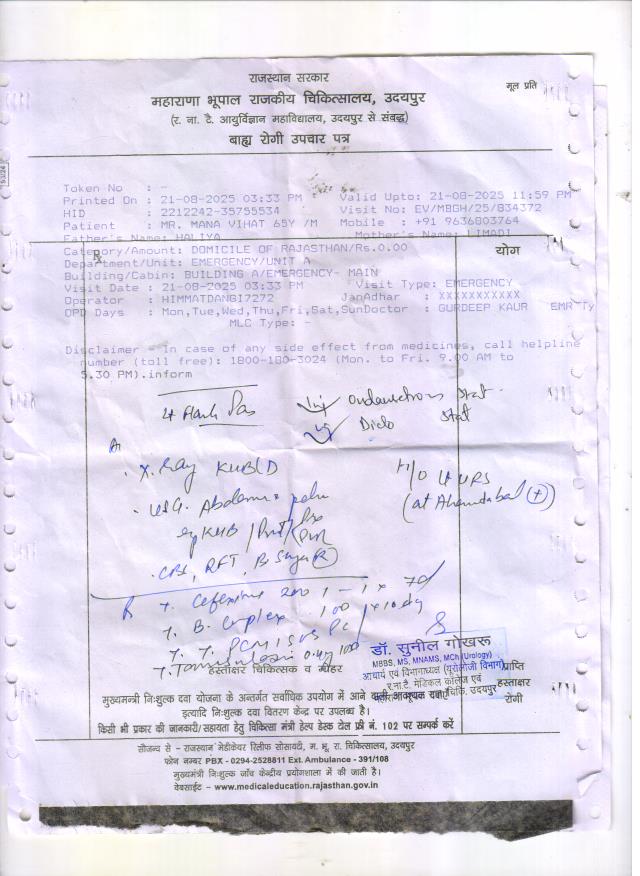 राजस्थान सरकार
मूल प्रति
महाराणा भूपाल राजकीय चिकित्सालय, उदयपुर
(र. ना. टै. आयुर्विज्ञान महाविद्यालय, उदयपुर से संबद्ध)
बाह्य रोगी उपचार पत्र
Token No : -
Printed On : 21-08-2025 03:33 PM Valid Upto: 21-08-2025 11:59 PM
HID : 2212242-35755534 Visit No: EV/MBGH/25/834372
Patient : MR. MANA VIHAT 65Y /M Mobile : +91 9636803764
Father's Name: HALIYA Mother's Name: LIMADI
Category/Amount: DOMICILE OF RAJASTHAN/Rs.0.00
योग
Department/Unit: EMERGENCY/UNIT A
Building/Cabin: BUILDING A/EMERGENCY- MAIN
Visit Date : 21-08-2025 03:33 PM Visit Type: EMERGENCY
Operator : HIMMATDANGI7272 JanAdhar : XXXXXXXXXXX
OPD Days : Mon,Tue,Wed,Thu,Fri,Sat,Sun Doctor : GURDEEP KAUR EMR Ty
MLC Type: -
Disclaimer - In case of any side effect from medicines, call helpline
number (toll free): 1800-180-3024 (Mon. to Fri. 9.00 AM to
5.30 PM).inform
Inj Stat
Inj Diclo Stat
X. Ray KUB
H/O URS
USG. Abdomen
KUB
CBC, RFT, B. Sugar (R)
T. Cefexime 200 1-1 x 7d
T. B. Complex
T. PCM
T. Tamsulosin 0.4
डॉ. सुनील गोखरू
MBBS, MS, MNAMS, MCh (Urology)
आचार्य एवं विभागाध्यक्ष (यूरोलॉजी विभाग)
र.ना.टै. मेडिकल कॉलेज एवं
हस्ताक्षर चिकित्सक व मोहर
प्राप्ति
हस्ताक्षर
रोगी
मुख्यमन्त्री निःशुल्क दवा योजना के अन्तर्गत सर्वाधिक उपयोग में आने वाली आवश्यक दवाएं
इत्यादि निःशुल्क दवा वितरण केन्द्र पर उपलब्ध है।
किसी भी प्रकार की जानकारी/सहायता हेतु चिकित्सा मंत्री हेल्प डेस्क टोल फ्री नं. 102 पर सम्पर्क करें
सौजन्य से - राजस्थान मेडीकेयर रिलीफ सोसायटी, म. भू. रा. चिकित्सालय, उदयपुर
फोन नम्बर PBX - 0294-2528811 Ext. Ambulance - 391/108
मुख्यमंत्री निःशुल्क जाँच केन्द्रीय प्रयोगशाला में की जाती है।
वेबसाईट - www.medicaleducation.rajasthan.gov.in